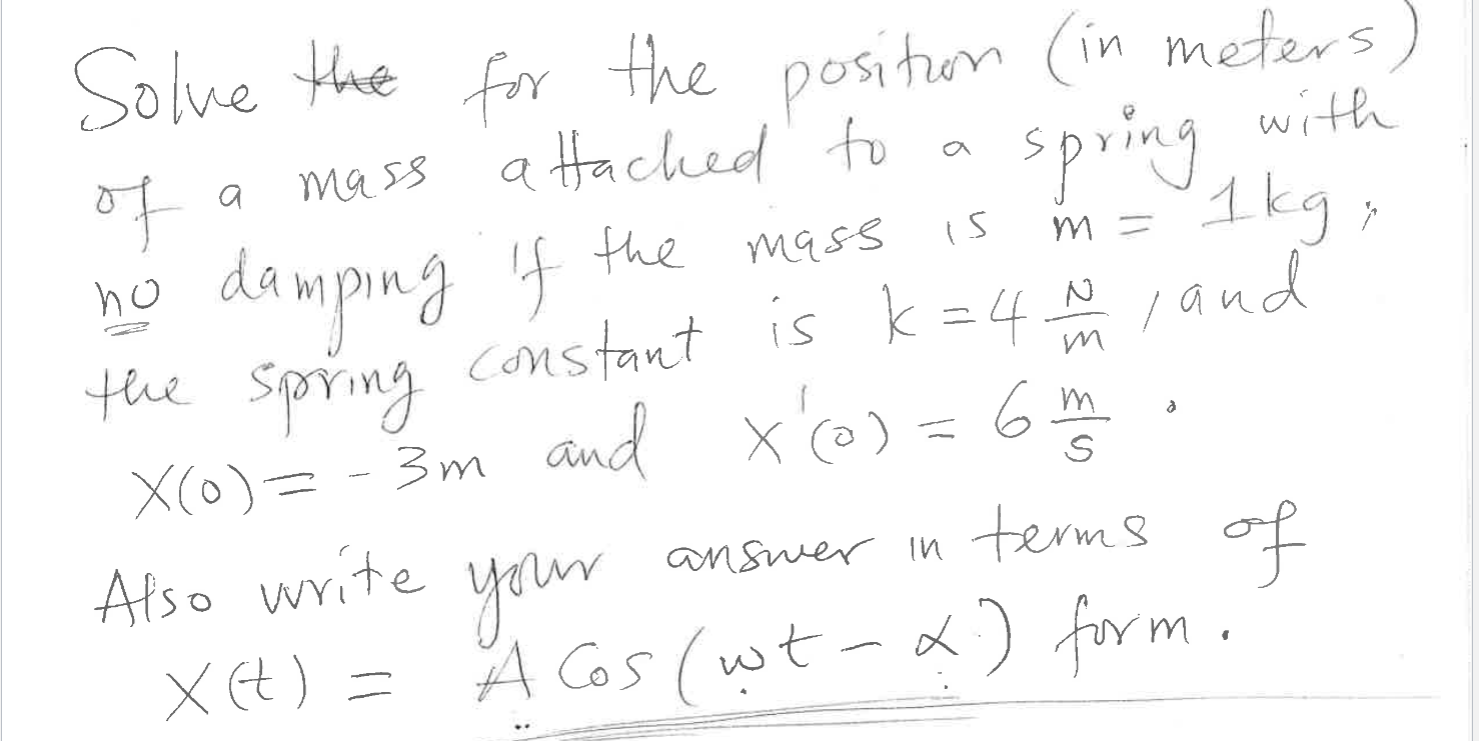 Solve the for the position (in meters)
of a mass attached to a spring with
no damping if the mass is m = 1kg,
the spring constant is k = 4 N/m, and
X(0) = -3m and X'(0) = 6 m/s.
Also write your answer in terms of
X(t) = A Cos(ωt - α) form.